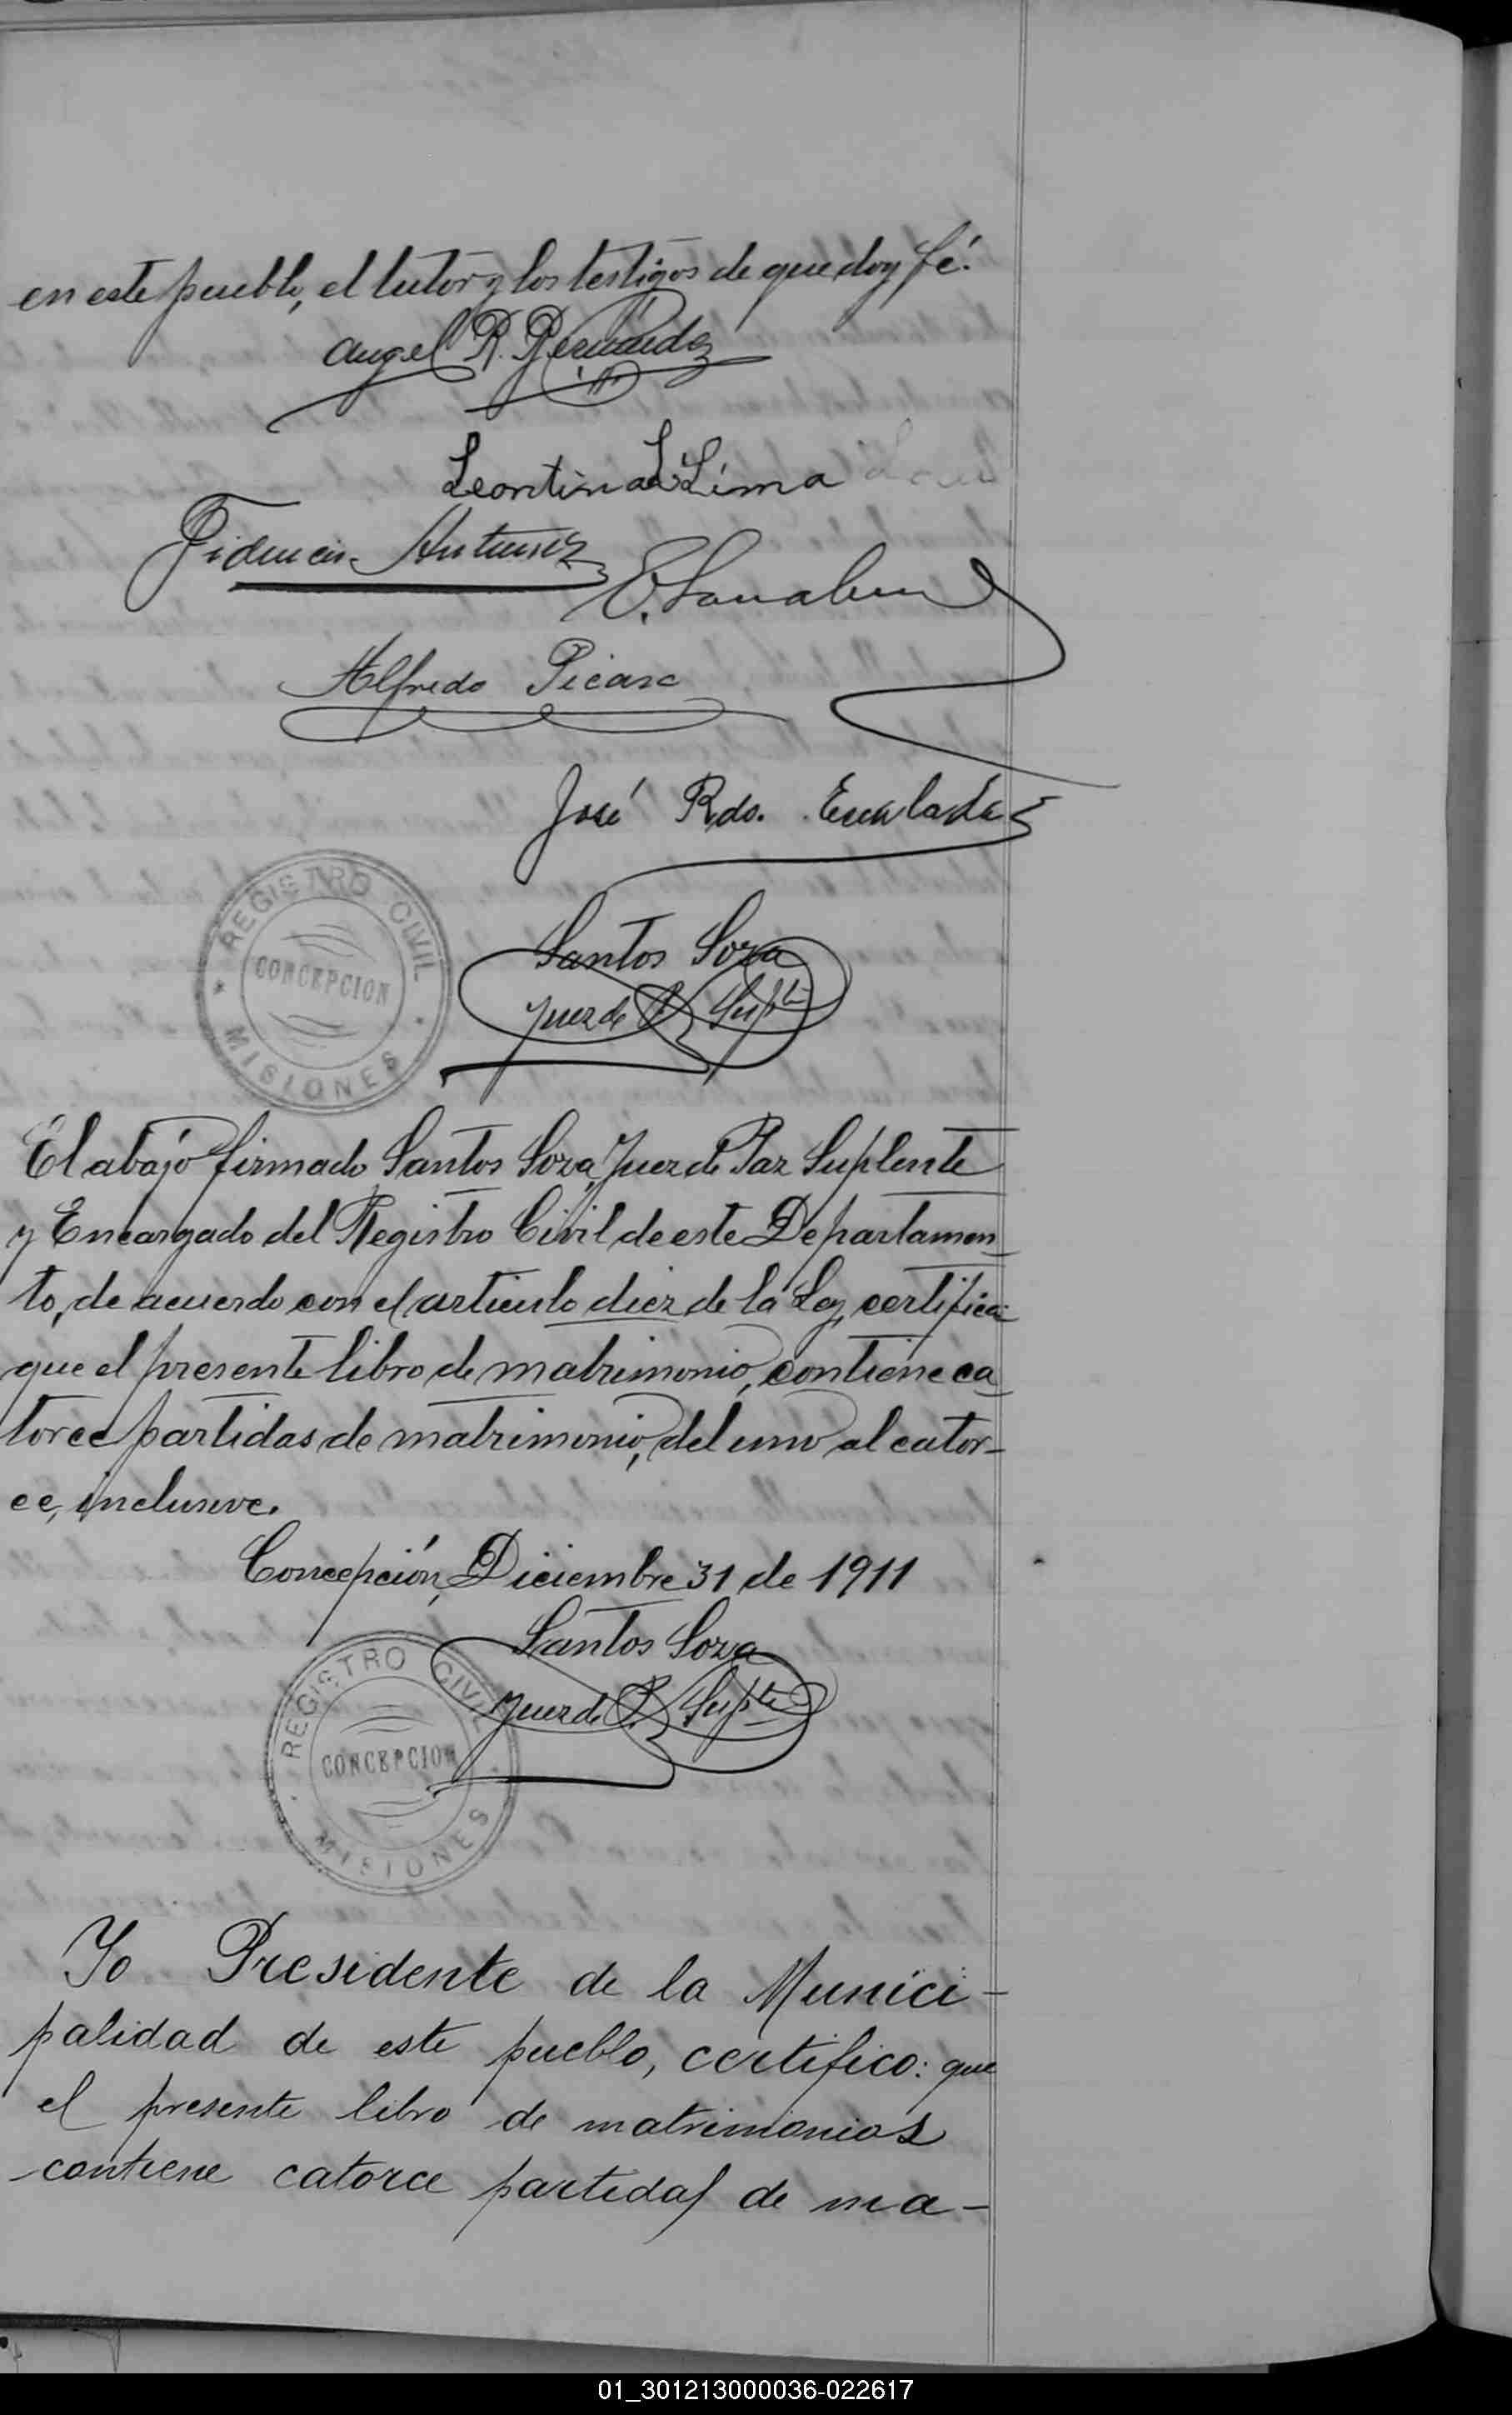 en este pueblo, el tutor y los testigos de que doy fé.
Angel R. Fernández
Leontina L. Lima
Fidencio Antunez
Alfredo Picaso
José Rdo. Escalada
REGISTRO CIVIL
CONCEPCION
MISIONES
Santos Soza
Juez de P. Supte
El abajo firmado Santos Soza, Juez de Paz Suplente
y Encargado del Registro Civil de este Departamen-
to, de acuerdo con el articulo diez de la Ley, certifica:
que el presente libro de matrimonio, contiene ca-
torce partidas de matrimonio, del uno al cator-
ce, inclusive.
Concepción, Diciembre 31 de 1911
Santos Soza
Juez de P. Supte
REGISTRO CIVIL
CONCEPCION
MISIONES
Yo Presidente de la Munici-
palidad de este pueblo, certifico: que
el presente libro de matrimonios
contiene catorce partidas de ma-
01_301213000036-022617